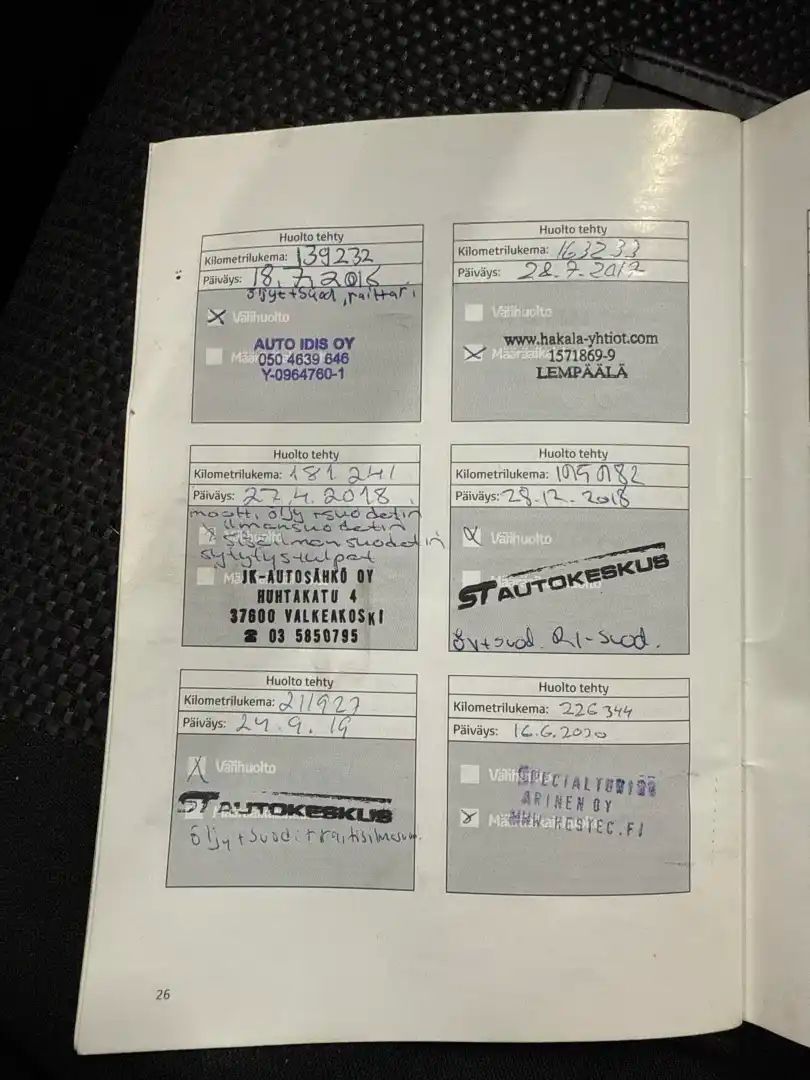 Huolto tehty
Kilometrilukema: 139232
Päiväys: 18.7.2016
öljyt+suod, raittari
Välihuolto
AUTO IDIS OY
050 4639 646
Y-0964760-1
Huolto tehty
Kilometrilukema: 163233
Päiväys: 28.7.2017
Välihuolto
www.hakala-yhtiot.com
1571869-9
LEMPÄÄLÄ
Huolto tehty
Kilometrilukema: 181 241
Päiväys: 27.4.2018
moott. öljy+suodatin
ilmansuodatin
sisäilmansuodatin
sytytystulpat
JK-AUTOSÄHKÖ OY
HUHTAKATU 4
37600 VALKEAKOSKI
☎ 03 5850795
Huolto tehty
Kilometrilukema:
Päiväys: 28.12.2018
Välihuolto
ST AUTOKESKUS
Öy+suod. RI-suod.
Huolto tehty
Kilometrilukema: 211927
Päiväys: 24.9.19
Välihuolto
ST AUTOKESKUS
Öljy+suod+raitisilmasuo.
Huolto tehty
Kilometrilukema: 226344
Päiväys: 16.6.2020
ARINEN OY
26